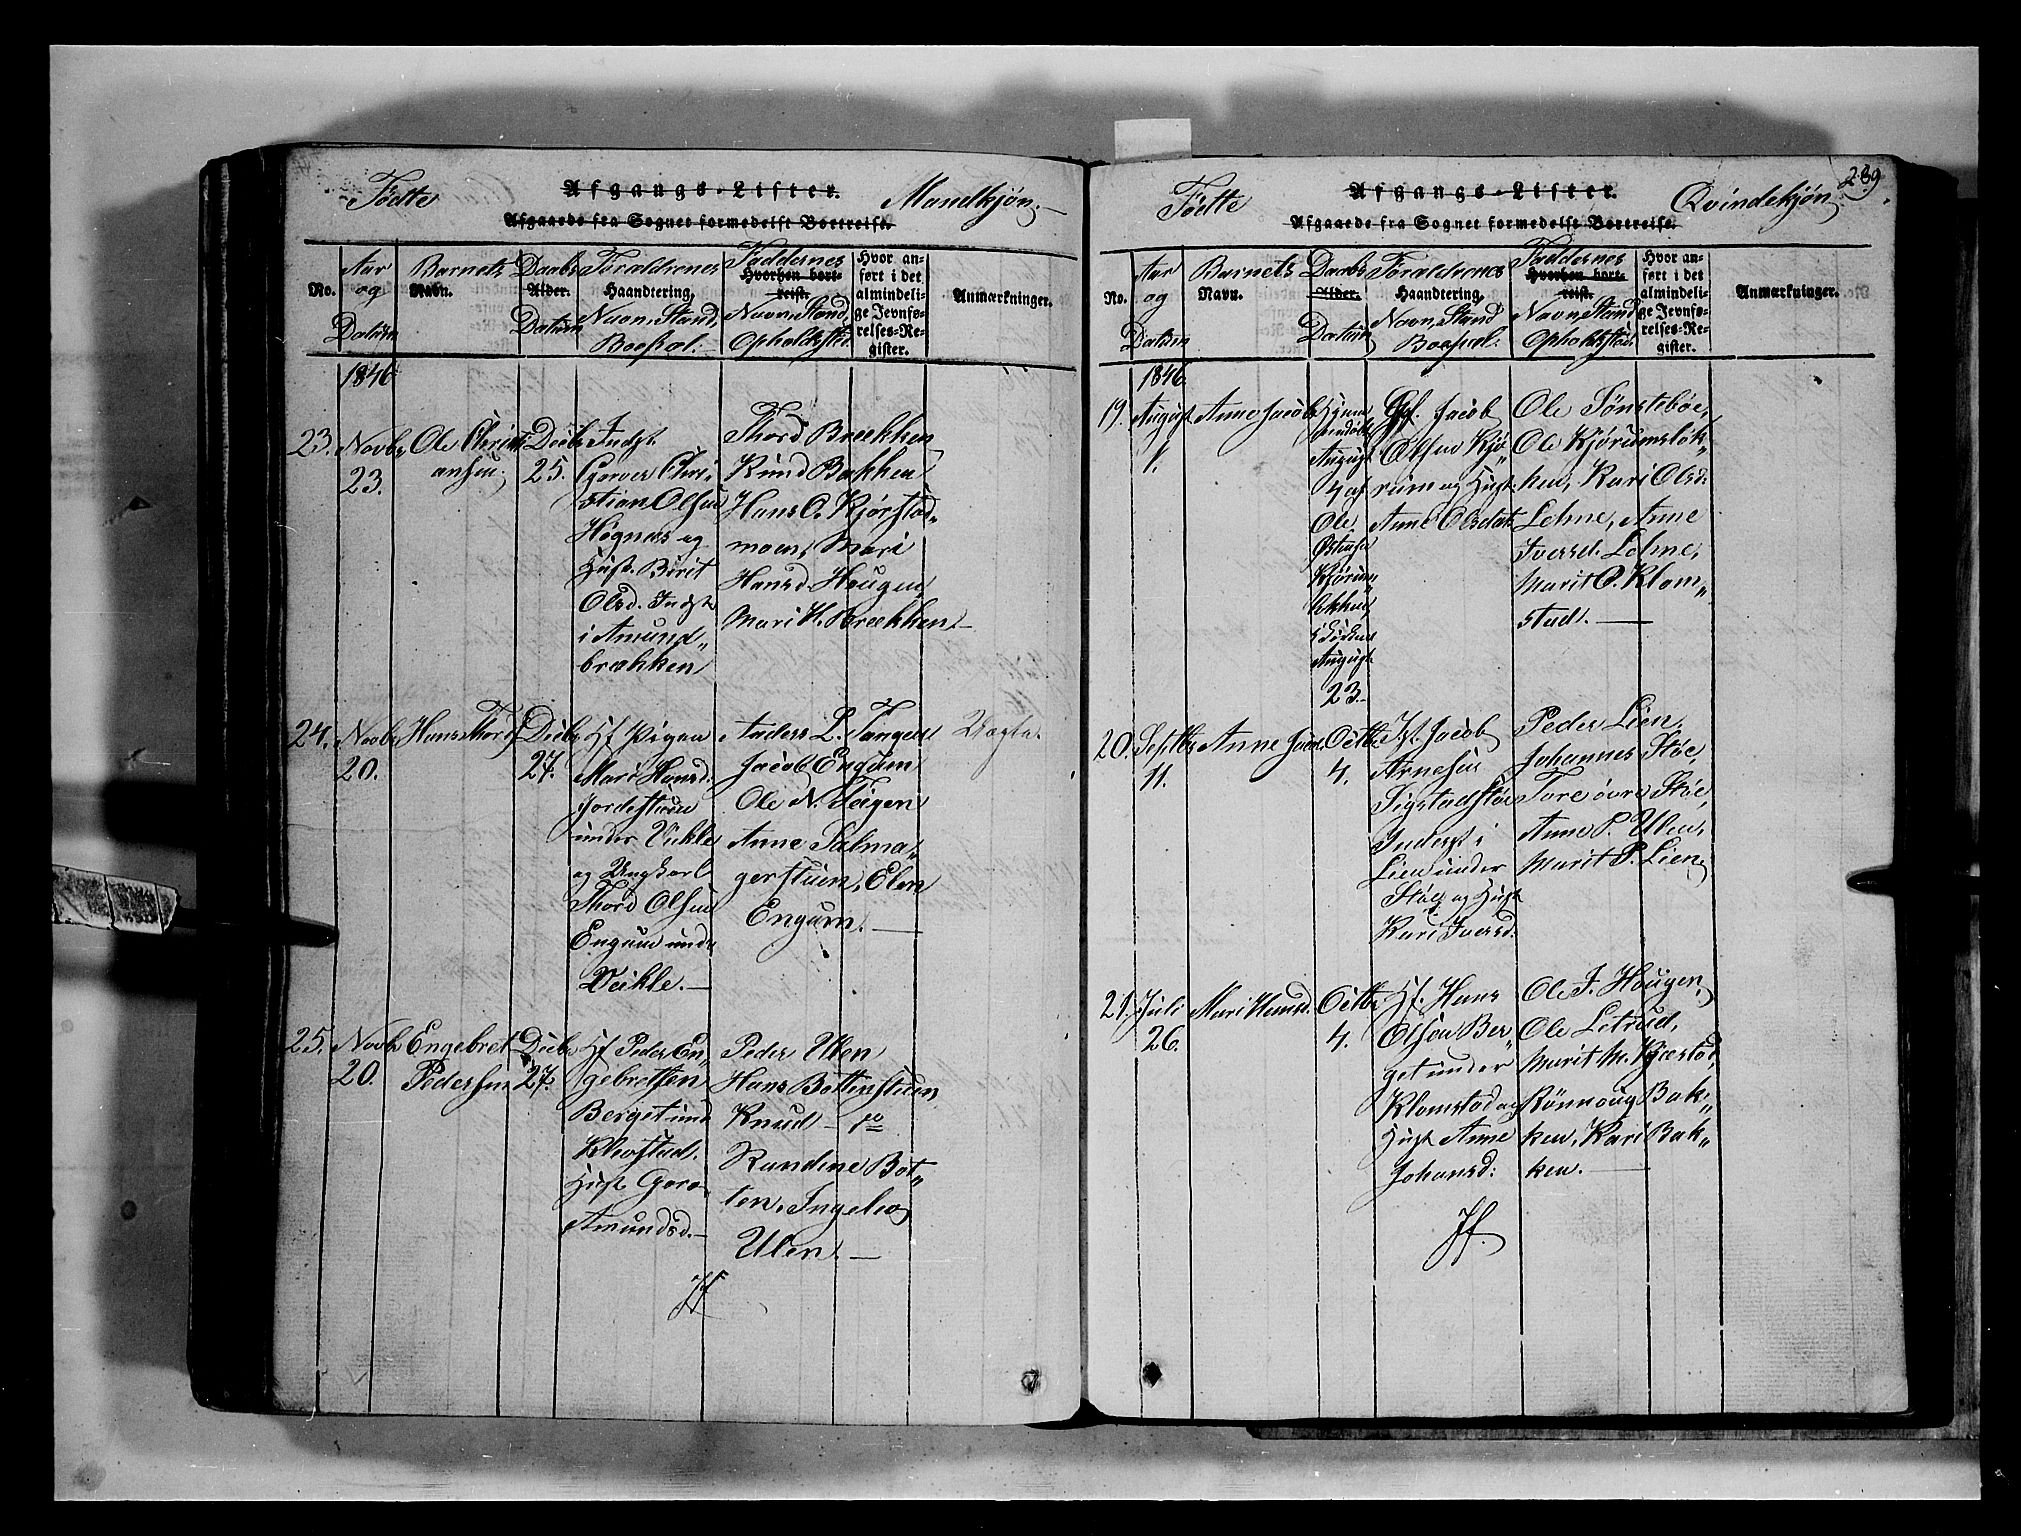 Fødte
Afgangs-Lister.
Mandkjøn.
Afgaaede fra Sognet formedelst Bortreise.
No.
Aar og Datum
Barnets Navn.
Daabs Alder. Datum
Forældrenes Haandtering, Navn, Stand, Boepæl.
Faddernes Hvorhen bortreist. Navn, Stand, Opholdssted
Hvor anført i det almindelige Jevnførelses-Register.
Anmærkninger.
1846
23.
Novbr
23.
Ole Christiansen,
Decbr
25.
Indst
Garver Chri-
stian Olsen
Høgnes og
Hust. Birit
Olsd. Indst
i Amund„
brækken
Thord Brækken
Knud Bakken
Hans O. Kjørstad„
moen, Mari
Hansd. Hougen
Mari H. Brækken
24.
Novbr
20.
Hans Thords
Decbr
27.
Pigen
Mari Hansd.
Jordestuen
under Vickle
og Ungkarl
Thord Olsen
Engum under
Veikle.
Anders L. Tangen
Jacob Engum
Ole N. Teigen
Anne Salma„
gerstuen, Elen
Engum.
Uægte.
25.
Novbr
20.
Engebret
Pedersen
Decbr
27.
Hf. Peder En„
gebretsen
Berget und
Klomstad.
Hust. Goro
Amundsd.
Peder Ulen
Hans Bottenstuen
Knud
Randine Bot„
ten, Ingeborg
Ulen.
239.
Fødte
Afgangs-Lister.
Qvindekjøn
Afgaaede fra Sognet formedelst Bortreise.
No.
Aar og Datum
Barnets Navn.
Daabs Alder. Datum
Forældrenes Haandtering, Navn, Stand Boepæl.
Faddernes Hvorhen bortreist. Navn, Stand Opholdssted
Hvor anført i det almindelige Jevnførelses-Register.
Anmærkninger.
1846.
19.
August
1.
Anne Jacobs
Hjemmedøbt
August
4 af
Ole
Østensen
Kjørum„
løkken
i Kirken
August
23.
Gf. Jacob
Olsen Kjø„
rum og Hust
Anne Olsdat.
Ole Sønsteböe,
Ole Kjørumsløk„
ken, Kari Olsd:
Lohne, Anne
Iversd. Lohne,
Marit O. Klom„
stad.
20.
Septbr
11.
Anne Jacobs
Octbr
4.
Jacob
Arnesen
Sigstadstøe
Inderst i
Lien under
Støe og Hust
Kari Iversd.
Peder Lien,
Johannes Støe,
Tore øvre Støe,
Anne P. Ulen,
Marit P. Lien
21.
Juli
26.
Mari Hansd.
Octbr
4.
Hf. Hans
Olsen Ber„
get under
Klomstad og
Hust Anne
Johansd:
Ole I. Hougen,
Ole Letrud,
Marit M. Kjørstad,
Rönnoug Bak„
ken, Kari Bak„
ken.